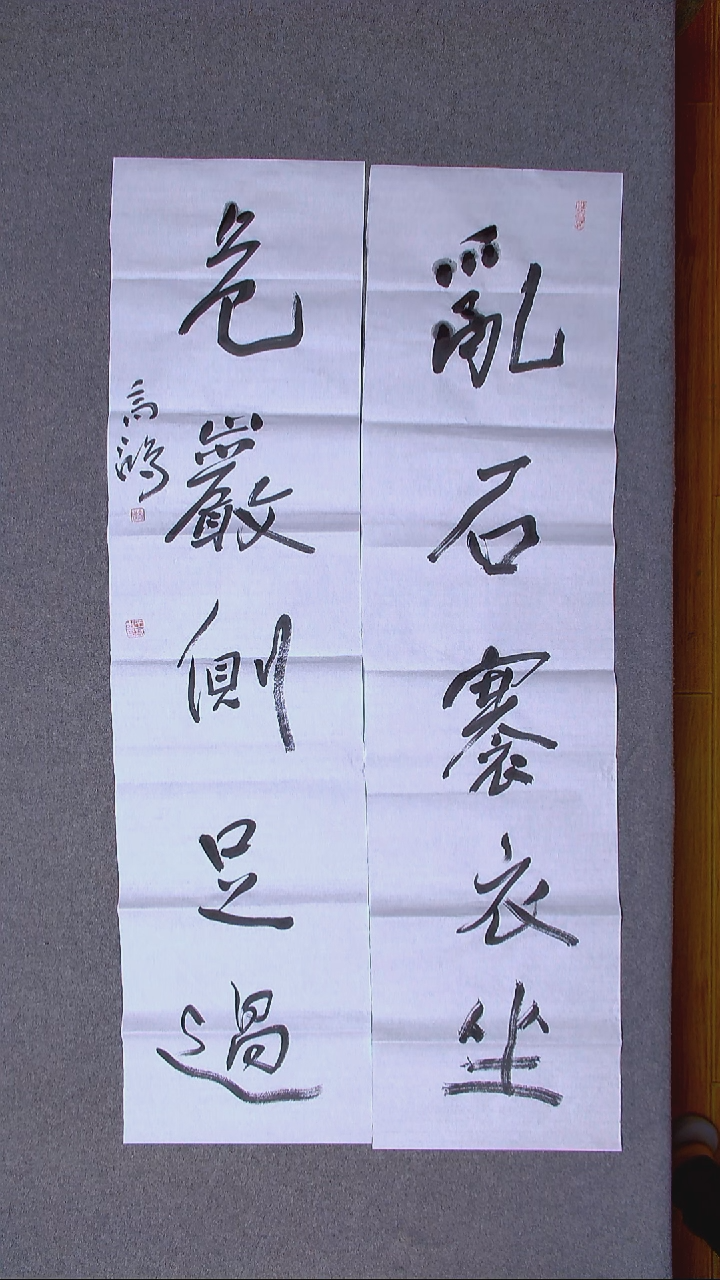 亂石褰衣坐
危巖側足過
高鴻